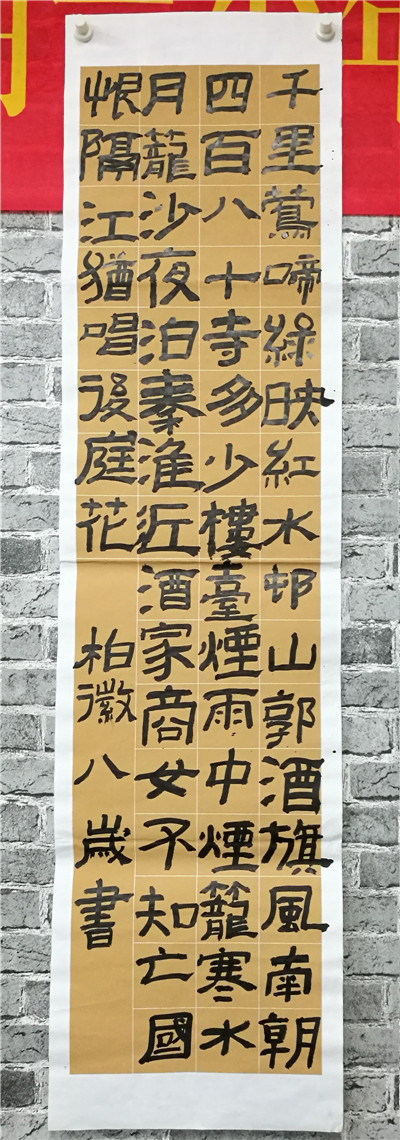 千里鶯啼綠映紅水邨山郭酒旗風南朝
四百八十寺多少樓臺煙雨中煙籠寒水
月籠沙夜泊秦淮近酒家商女不知亡國
恨隔江猶唱後庭花 柏徽八歲書